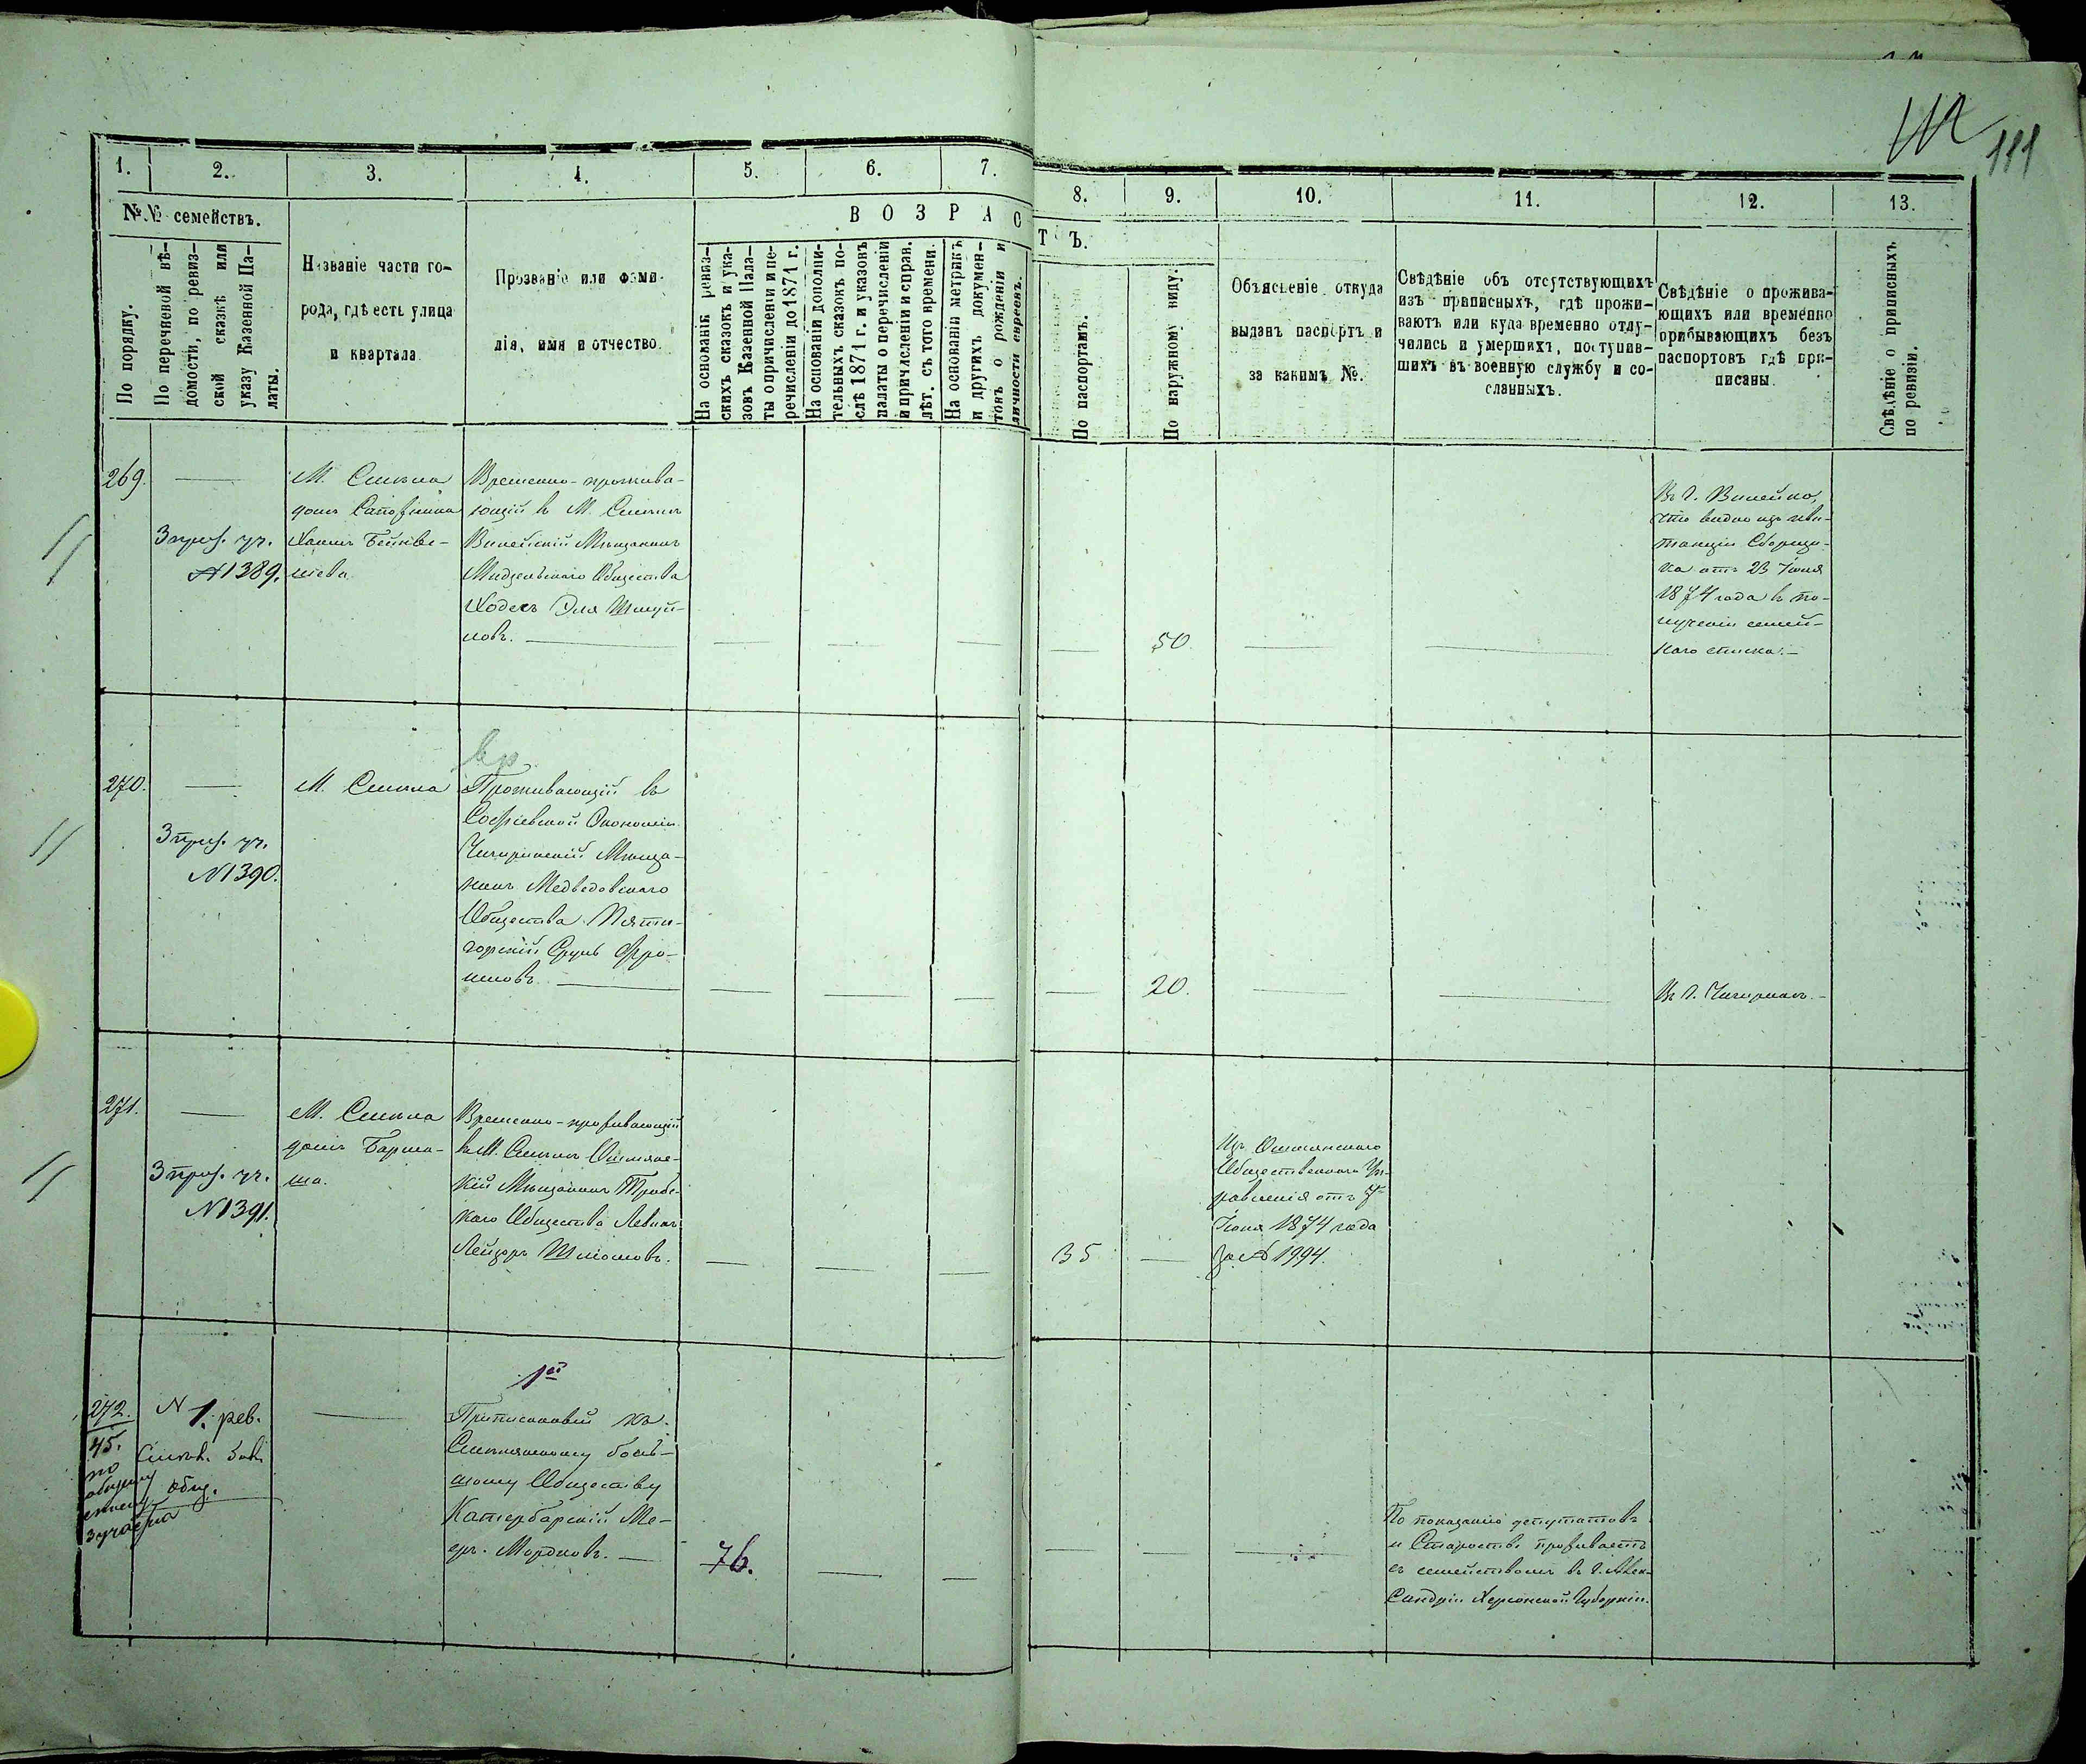 111
1.
2.
3.
4.
5.
6.
7.
8.
9.
10.
11.
12.
13.
№№ семействъ.
По порядку.
По перечневой вѣ-
домости, по ревиз-
ской сказкѣ или
указу Казенной Па-
латы.
Названіе части го-
рода, гдѣ есть улица
и квартала
Прозваніе или фами-
лія, имя и отчество.
ВОЗРАСТЪ.
На основаніи ревиз-
скихъ сказокъ и ука-
зовъ Казенной Пала-
ты о причисленіи и пе-
речисленіи до 1871 г.
На основаніи дополни-
тельныхъ сказокъ по-
слѣ 1871 г. и указовъ
палаты о перечисленіи
и причисленіи и справ.
лѣт. съ того времени.
На основаніи метрикъ
и другихъ докумен-
товъ о рожденіи и
личности евреевъ.
По паспортамъ.
По наружному виду.
Объясненіе откуда
выданъ паспортъ и
за какимъ №.
Свѣдѣніе объ отсутствующихъ
изъ приписныхъ, гдѣ прожи-
ваютъ или куда временно отлу-
чились и умершихъ, поступив-
шихъ въ военную службу и со-
сланныхъ.
Свѣдѣніе о прожива-
ющихъ или временно
прибывающихъ безъ
паспортовъ гдѣ при-
писаны.
Свѣдѣніе о приписныхъ
по ревизіи.
269.
3 приз. уч.
№1389.
М. Смѣла
домъ
Хаимъ
Временно-прожива-
ющій въ М. Смѣлѣ
Вилейскій Мѣщанинъ
Общества
Ходесъ Эля Шмуй-
ловъ.
50.
Въ г. Вилейкѣ,
что видно изъ кви-
танціи Сборщи-
ка отъ 23 Іюня
1874 года въ по-
лученіи семей-
наго списка.
270.
3 приз. уч.
№1390.
М. Смѣла
вр
Проживающій въ
Софіевской Экономіи
Чигиринскій Мѣща-
нинъ Медведовскаго
Общества Пяти-
горскій Сруль Фро-
имовъ.
20.
Въ г. Чигиринѣ.
271.
3 приз. уч.
№1391.
М. Смѣла
домъ Барма-
ша.
Временно-проживающій
въ М. Смѣлѣ Ошмянс-
кій Мѣщанинъ Трабс-
каго Общества Левинъ
Лейзоръ Шліомовъ.
35
Изъ Ошмянскаго
Общественнаго Уп-
равленія отъ 7
Іюня 1874 года
за № 1994.
272.
45.
по
общему
списку
3 участка
№ 1. рев.
общ.
1й
Приписанный къ
Смѣлянскому боль-
шому Обществу
Катербарскій Ме-
еръ Мордковъ.
76.
По показанію депутатовъ
и Старостъ проживаетъ
съ семействомъ въ г. Алек-
сандріи Херсонской Губерніи.